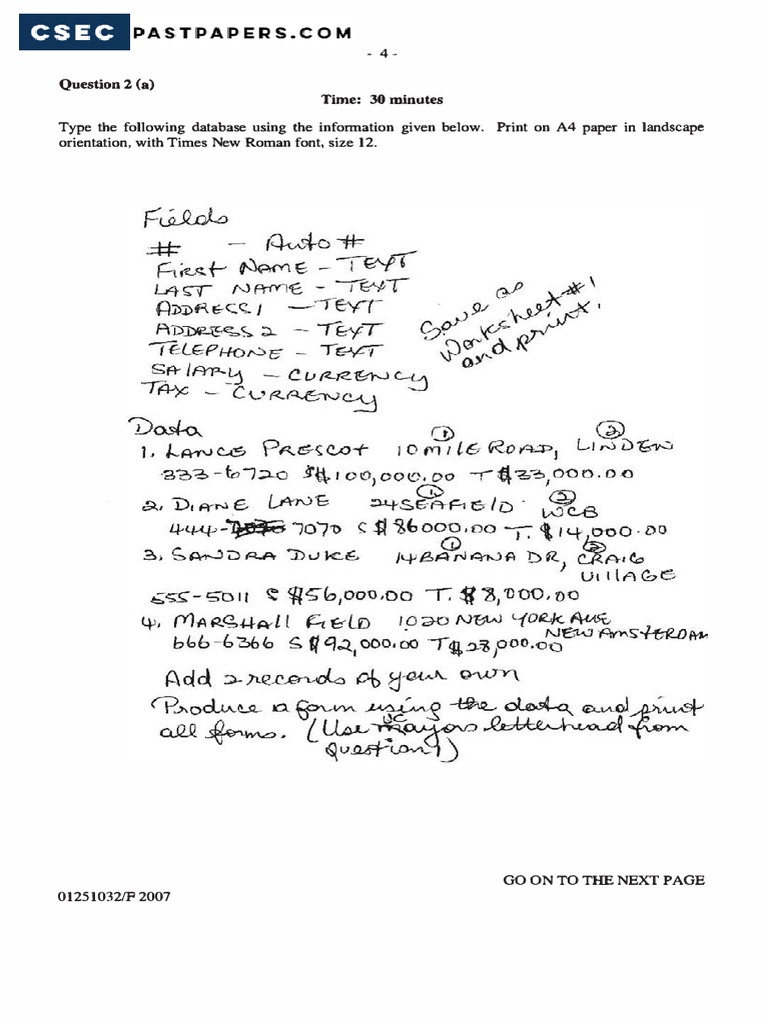 CSEC PASTPAPERS.COM
- 4 -
Question 2 (a)
Time: 30 minutes
Type the following database using the information given below. Print on A4 paper in landscape
orientation, with Times New Roman font, size 12.
Fields
# - Auto #
FIRST NAME - TEXT
LAST NAME - TEXT
ADDRESS 1 - TEXT
ADDRESS 2 - TEXT
TELEPHONE - TEXT
SALARY - CURRENCY
TAX - CURRENCY
Save as
Worksheet #1
and print.
Data
1. LANCE PRESCOT 10 MILE ROAD, LINDEN
① ②
333-6720 S$100,000.00 T$33,000.00
2. DIANE LANE 24 SEAFIELD WCB
① ②
444- 7070 S $86000.00 T. $14,000.00
3. SANDRA DUKE 14 BANANA DR, CRAIG
① ②
VILLAGE
555-5011 S $56,000.00 T. $8,000.00
4. MARSHALL FIELD 1020 NEW YORK AVE
NEW AMSTERDAM
666-6366 S$92,000.00 T$28,000.00
Add 2 records of your own
Produce a form using the data and print
all forms. (Use mayors letterhead from
UC
Question 1)
GO ON TO THE NEXT PAGE
01251032/F 2007